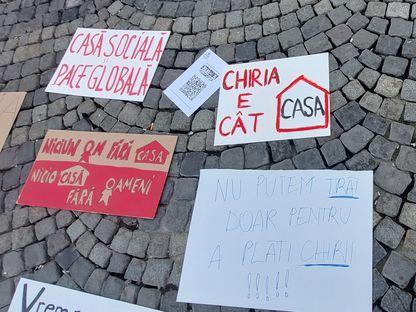 CASĂ SOCIALĂ
=
PACE GLOBALĂ
CHIRIA
E
CÂT CASA
NICIUN OM FĂRĂ CASĂ
NICIO CASĂ OAMENI
FĂRĂ
NU PUTEM TRĂI
DOAR PENTRU
A PLĂTI CHIRII
!!!!!!
Vrem